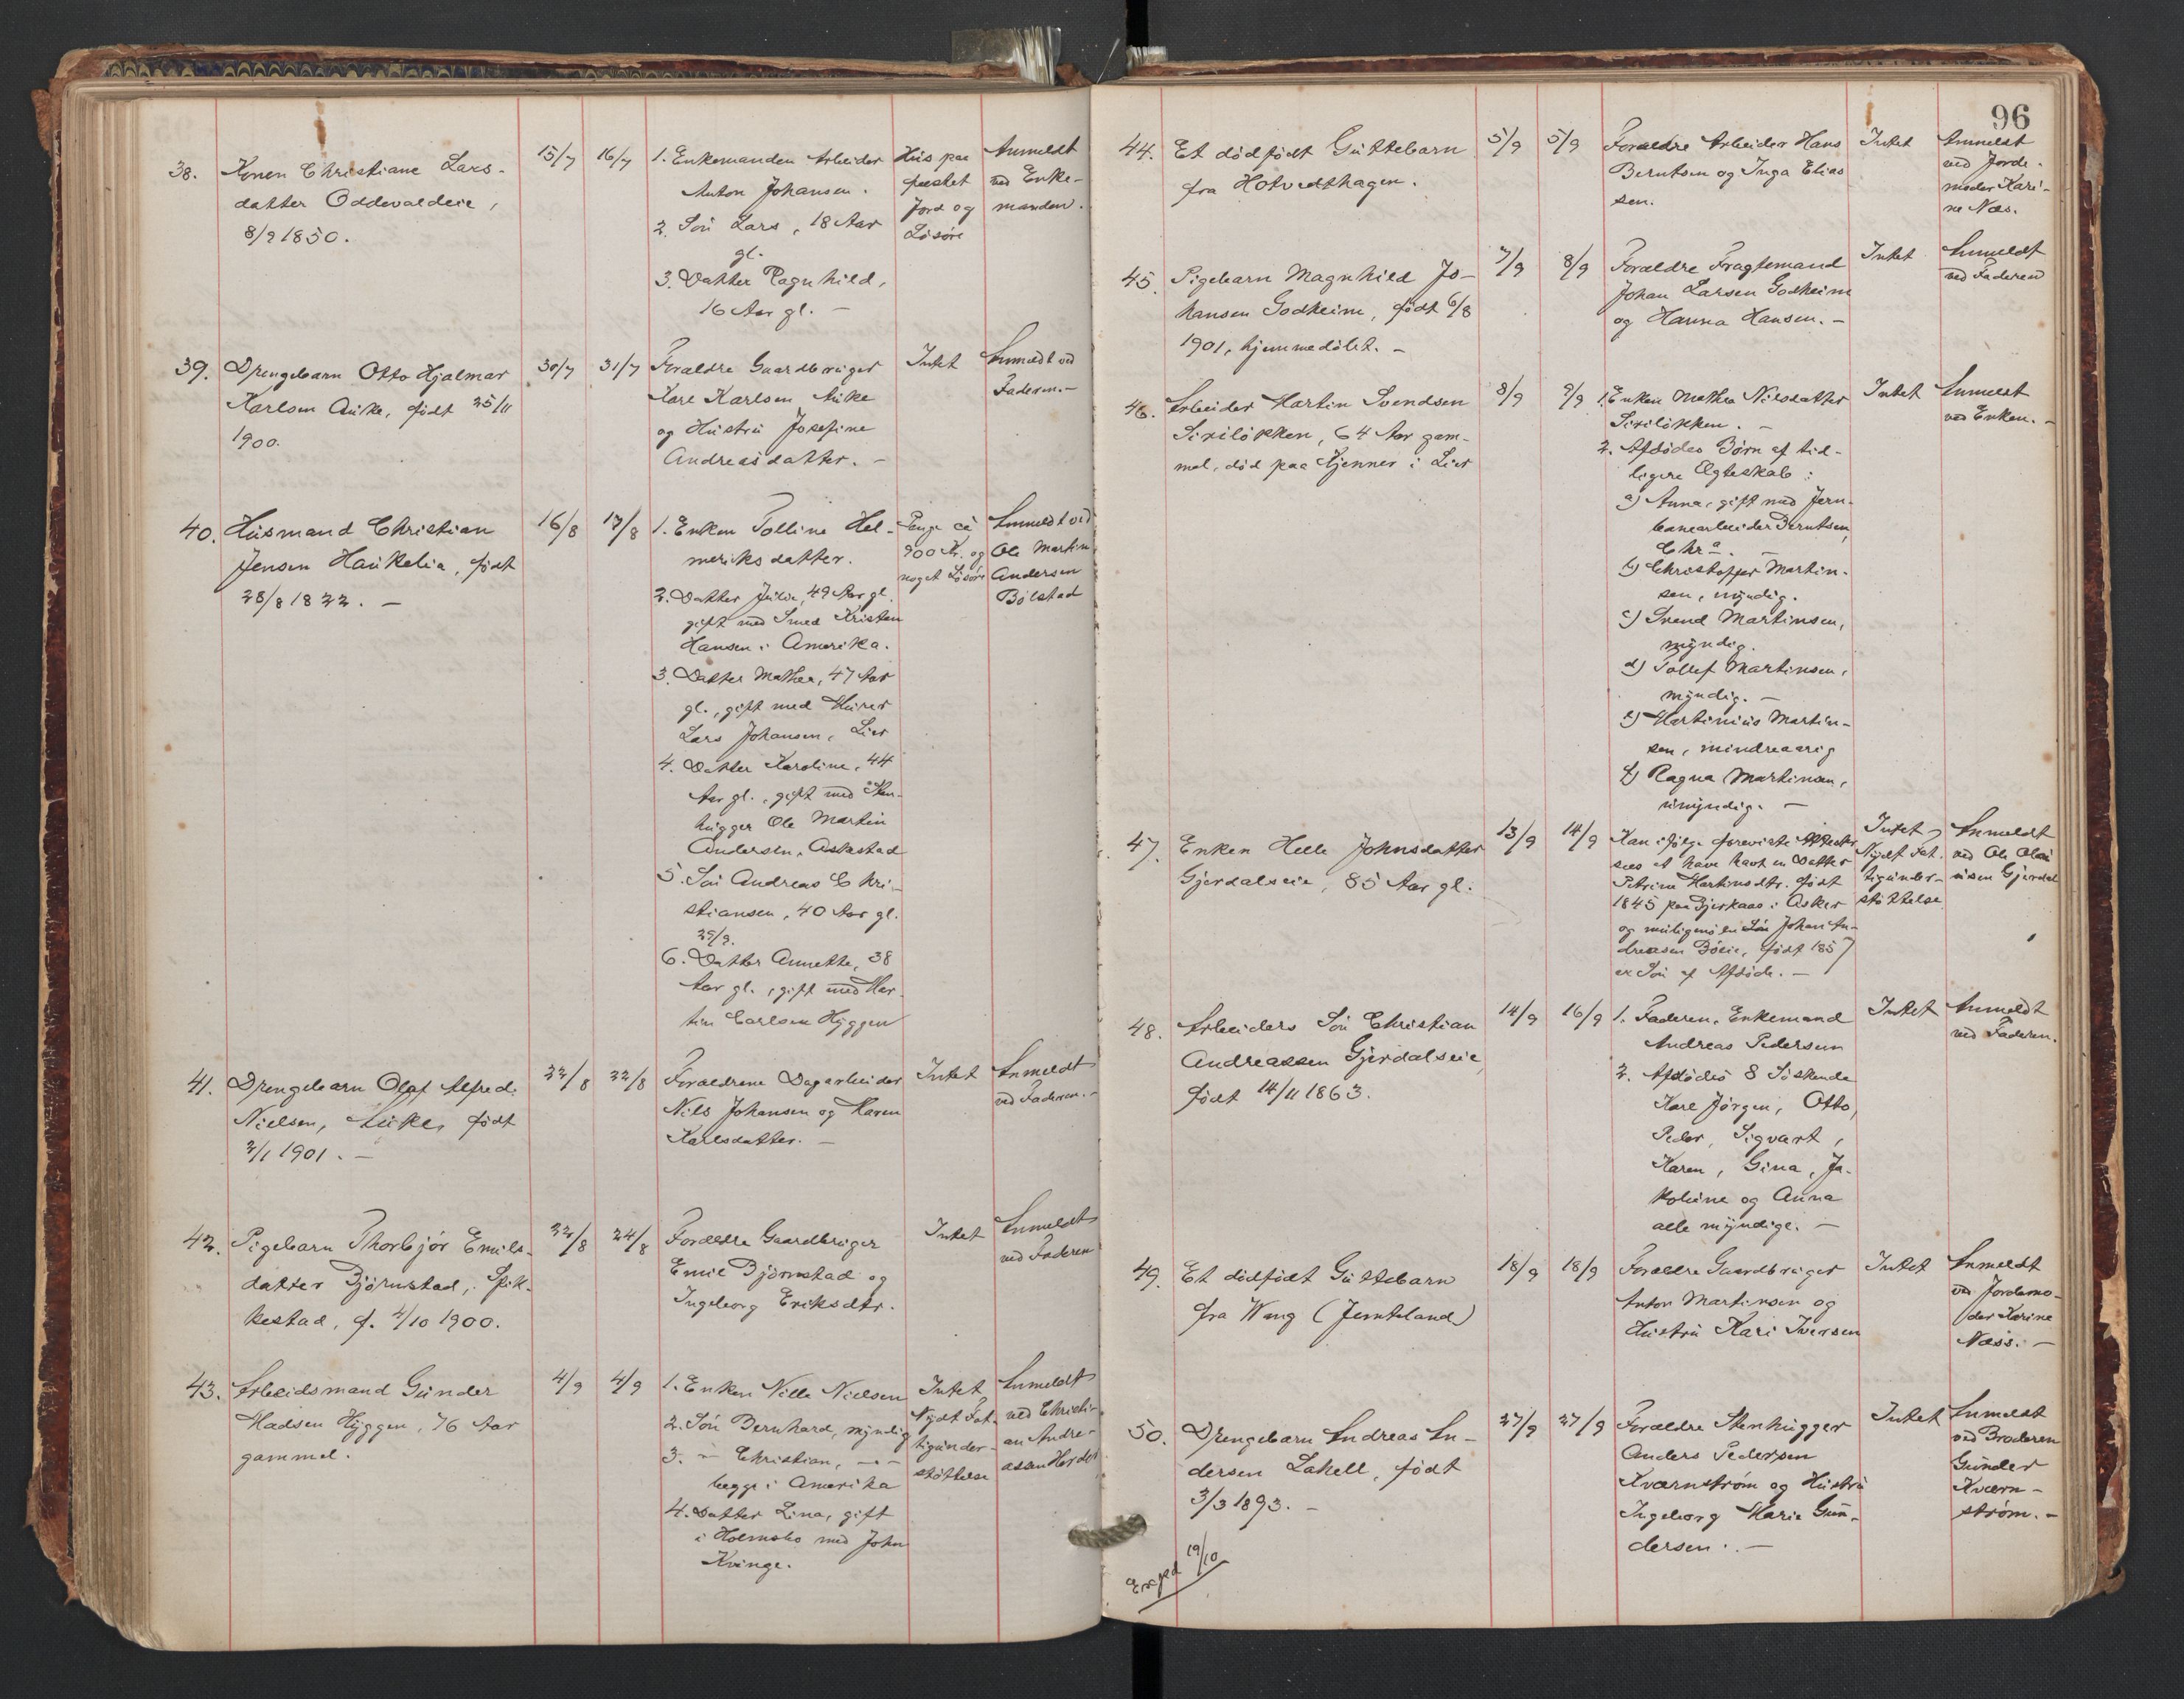 38.
Konen Christiane Lars-
datter Oddevaldeie,
8/9 1850.
15/7
16/7
1. Enkemanden Arbeider
Anton Johansen.
2. Søn Lars, 18 Aar
gl.
3. Datter Ragnhild,
16 Aar gl. —
Hus paa
fæstet
Jord og
Løsøre
Anmeldt
ved Enke-
manden.
39.
Drengebarn Otto Hjalmar
Karlsen Auke, født 25/11
1900.
30/7
31/7
Forældre Gaardbruger
Karl Karlsen Auke
og Hustru Josefine
Andreasdatter. —
Intet
Anmeldt ved
Faderen. —
40.
Husmand Christian
Jensen Haukelia, født
28/8 1822. —
16/8
17/8
1. Enken Olline Hel-
meriksdatter.
2. Datter Julie, 49 Aar gl.
gift med Smed Kristen
Hansen i Amerika.
3. Datter Mathea, 47 Aar
gl., gift med Murer
Lars Johansen, Lier
4. Datter Karoline, 44
Aar gl., gift med Sten-
hugger Ole Martin
Andersen,
5. Søn Andreas Chri-
stiansen, 40 Aar gl.
29/9.
6. Datter Annette, 38
Aar gl., gift med Mar-
tin Carlsen Hyggen
Penge ca
900 Kr. og
noget Løsøre
Anmeldt ved
Ole Martin
Andersen
Bølstad
41.
Drengebarn Olaf Alfred
Nielsen, Auke, født
2/1 1901. —
22/8
22/8
Forældrene Dagarbeider
Nils Johansen og Karen
Karlsdatter. —
Intet
Anmeldt
ved Faderen. —
42.
Pigebarn Thorbjør Emils-
datter Bjørnstad, Spik-
kestad, f. 4/10 1900.
22/8
24/8
Forældre Gaardbruger
Emil Bjørnstad og
Ingeborg Eriksdtr.
Intet
Anmeldt
ved Faderen
43.
Arbeidsmand Gunder
Madsen Hyggen, 76 Aar
gammel.
4/9
4/9
1. Enken Nille Nielsen
2. Søn Bernhard, myndig
3. — Christian, — " —
begge i Amerika
4. Datter Lina, gift
i Holmsbo med John
Kvinge.
Intet
Nydt Fat-
tigunder-
støttelse
Anmeldt
ved Christi-
an Andre-
assen
96
44.
Et dødfødt Guttebarn
fra Hotvedthagen.
5/9
5/9
Forældre Arbeider Hans
Berntsen og Inga Elias-
sen.
Intet
Anmeldt
ved Jorde-
moder Kari-
ne Næs.
45.
Pigebarn Magnhild Jo-
hansen Godheim, født 6/8
1901, hjemmedøbt. —
7/9
8/9
Forældre Fragtemand
Johan Larsen Godheim
og Hanna Hansen. —
Intet
Anmeldt
ved Faderen
46.
Arbeider Martin Svendsen
Siriløkken, 64 Aar gam-
mel, død paa Kjenner i Lier
8/9
9/9
1. Enken Mathea Nilsdatter
Siriløkken. —
2. Afdødes Børn af tid-
ligere Ægteskab:
a) Anna, gift med Jern-
banearbeider Berntsen,
Chra. —
b) Christoffer Martin-
sen, myndig.
c) Svend Martinsen,
myndig.
d) Tollef Martinsen,
myndig. —
e) Martinius Martin-
sen, mindreaarig
f) Ragna Martinsen,
umyndig. —
Intet
Anmeldt
ved Enken. —
47.
Enken Helle Johnsdatter
Gjerdalseie, 85 Aar gl.
13/9
14/9
Kan ifølge foreviste Attester
sees at have havt en Datter
Petrine Martinsdtr. født
1845 paa Bjerkaas i Asker
og muligens en Søn Johan An-
dreasen Bøeie, født 1857
er Søn af Afdøde. —
Intet
Nydt Fat-
tigunder-
støttelse
Anmeldt
ved Ole Olai
usen Gjerdal
48.
Arbeiders Søn Christian
Andreassen Gjerdalseie,
født 14/11 1863.
14/9
16/9
1. Faderen, Enkemand
Andreas Pedersen
2. Afdødes 8 Søskende
Karl Jørgen, Otto,
Peder, Sigvart,
Karen, Gina, Ja-
kobine og Anna
alle myndige. —
Intet
Anmeldt
ved Faderen.
49.
Et dødfødt Guttebarn
fra Wang (Jemteland)
18/9
18/9
Forældre Gaardbruger
Anton Martinsen og
Hustru Kari Iversen
Intet
Anmeldt
ved Jordemo-
der Karine
Næss. —
50.
Drengebarn Andreas An-
dersen Lahell, født
3/3 1893. —
27/9
27/9
Forældre Stenhugger
Anders Pedersen
Kværnstrøm og Hustru
Ingeborg Marie Gun-
dersen. —
Intet
Anmeldt
ved Broderen
Gunder
Kværn-
strøm. —
19/10